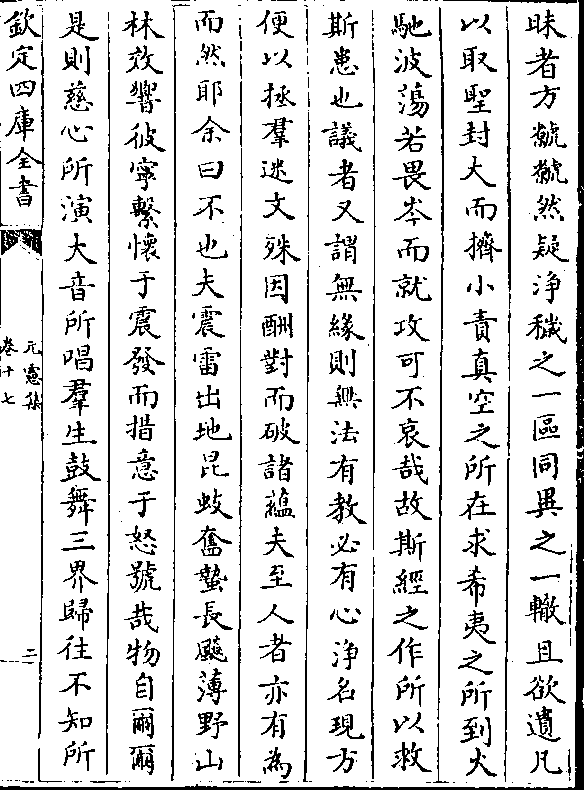 昧者方虩虩然疑浄穢之一區同異之一轍且欲遺凡
以取聖封大而擠小責真空之所在求希夷之所到火
馳波蕩若畏岑而就攻可不哀哉故斯經之作所以救
斯患也議者又謂無緣則無法有教必有心浄名現方
便以拯羣迷文殊因酬對而破諸蘊夫至人者亦有為
而然耶余曰不也夫震雷出地昆蚑奮蟄長飈薄野山
林效響彼寧繫懷于震發而措意于怒號哉物自爾爾
是則慈心所演大音所唱羣生鼓舞三界歸往不知所
欽定四庫全書
元憲集
卷十七
二